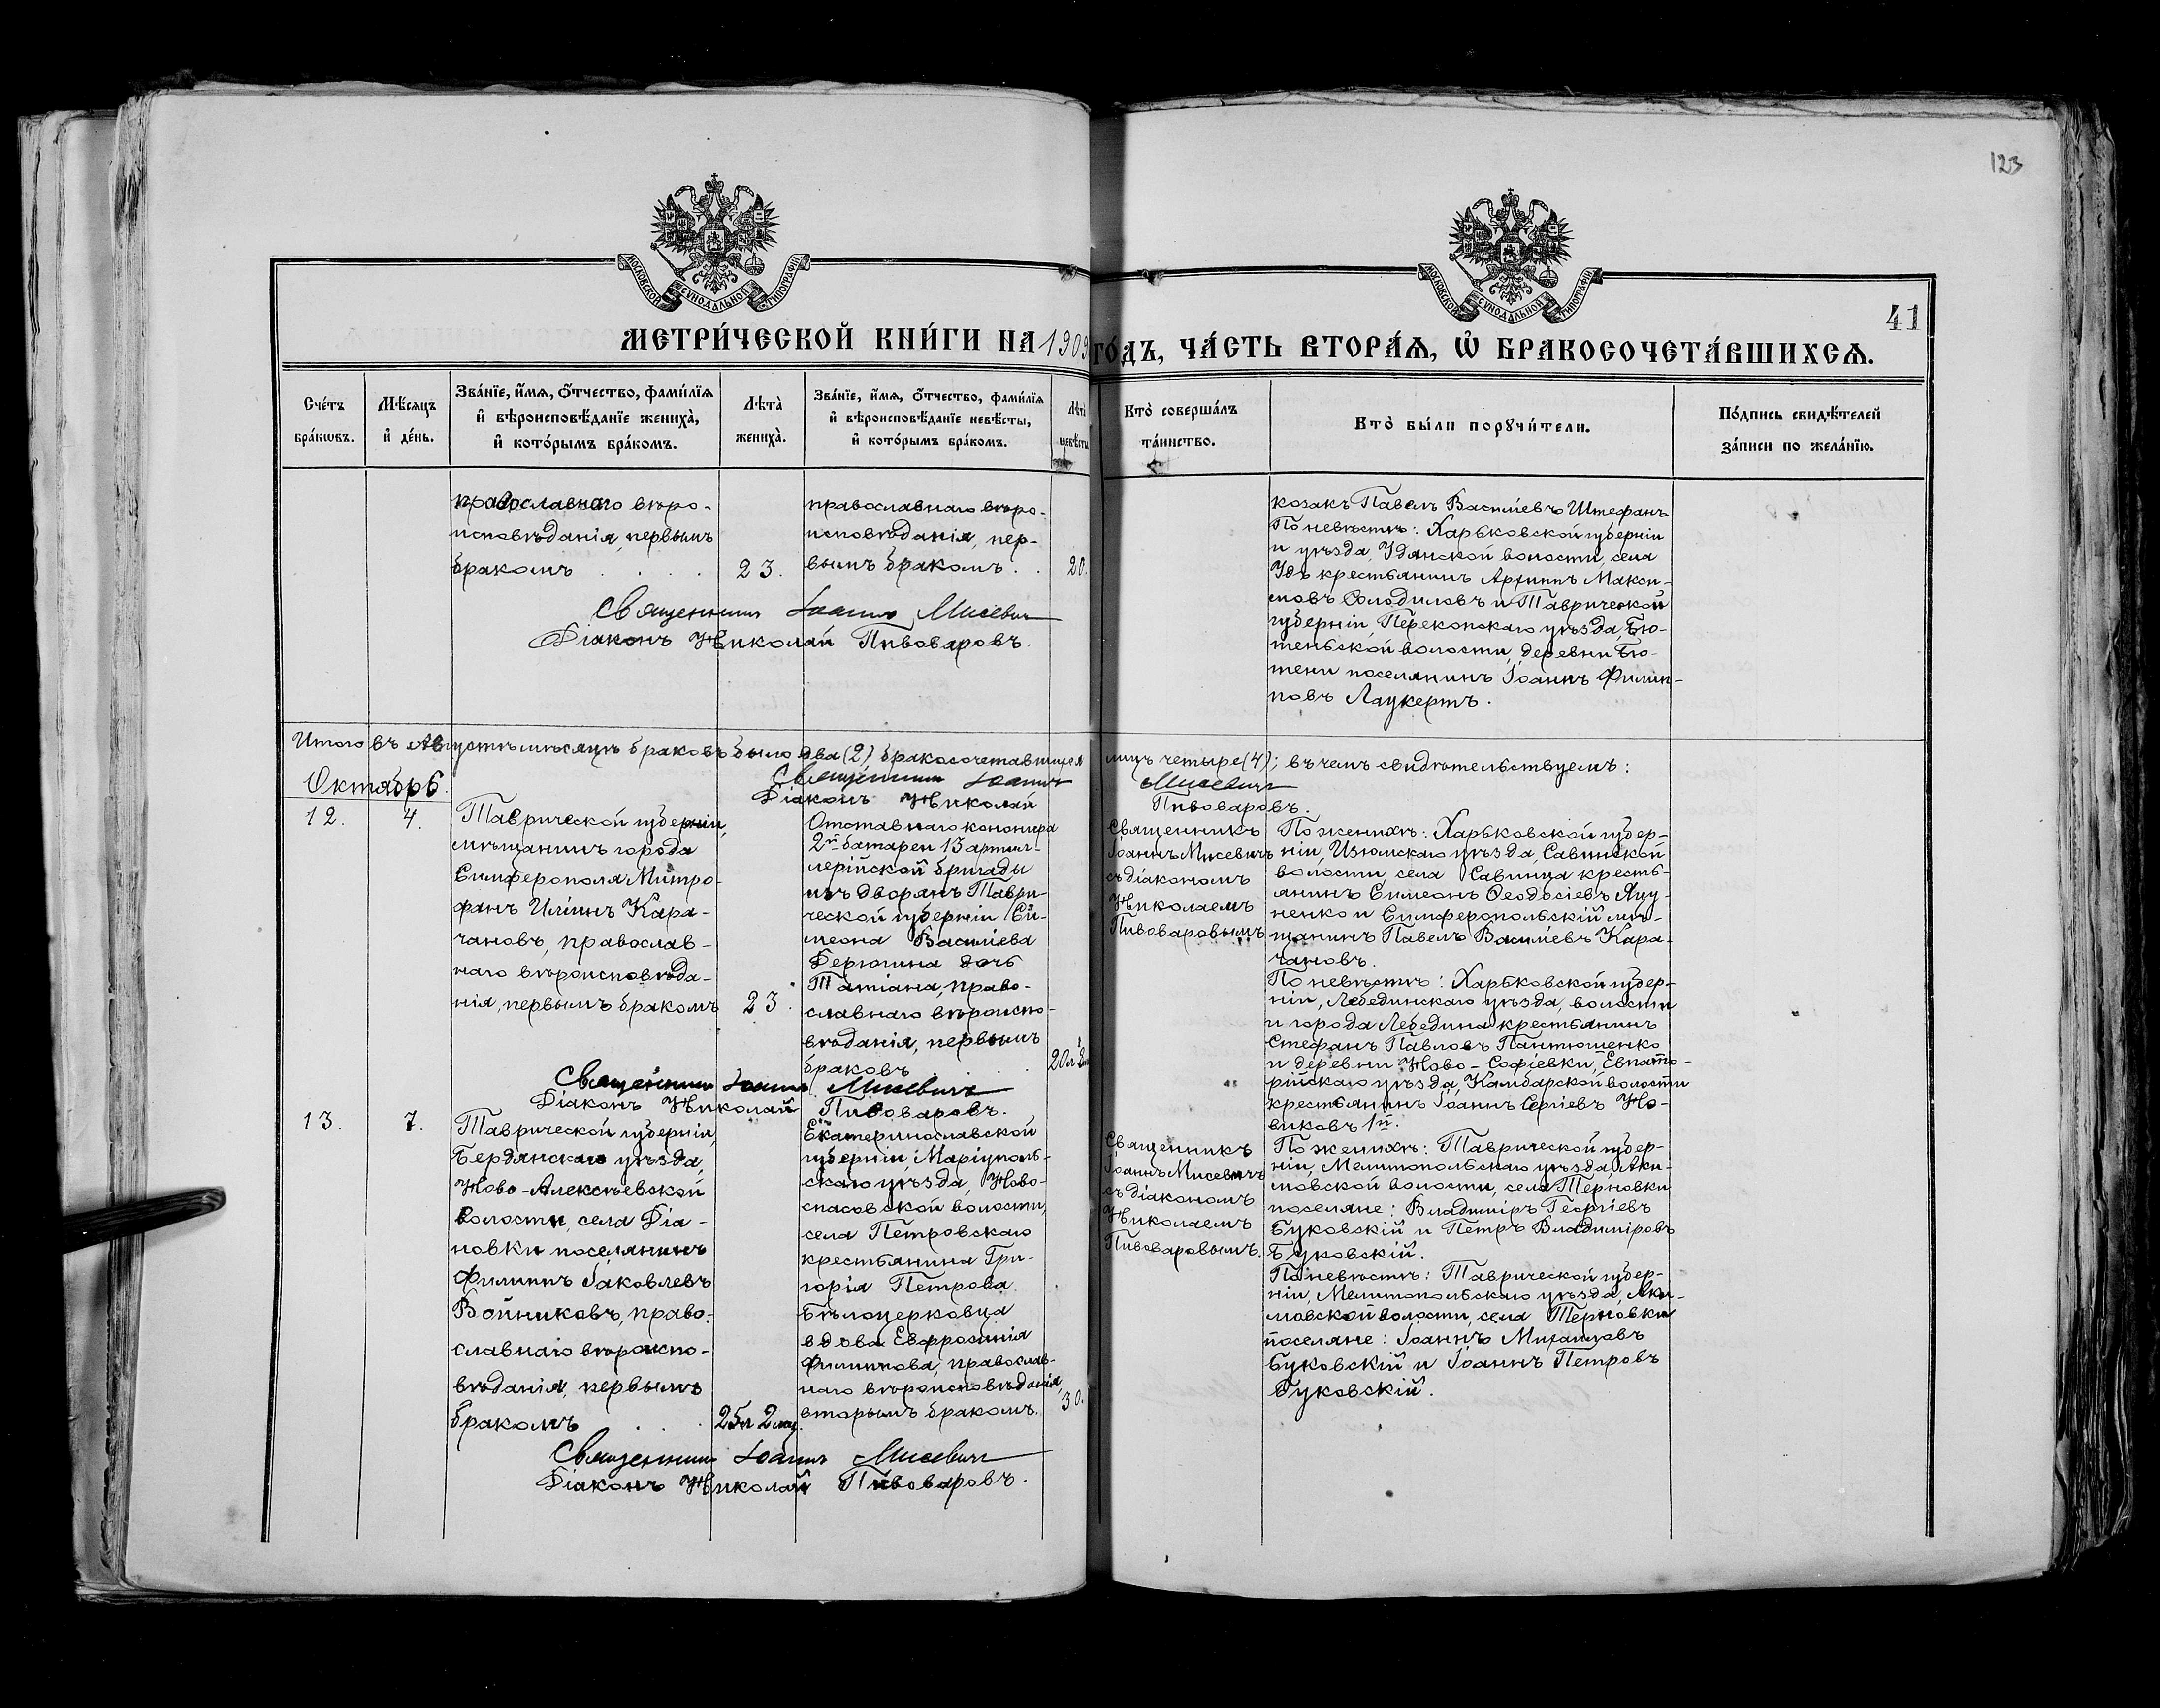 123
МОСКОВСКОЙ СУНОДАЛЬНОЙ ТИПОГРАФІИ
МОСКОВСКОЙ СУНОДАЛЬНОЙ ТИПОГРАФІИ
41
МЕТРИ́ЧЕСКОЙ КНИ́ГИ НА 1909 ГО́ДЪ, ЧА́СТЬ ВТОРА́Ѧ, Ѡ БРАКОСОЧЕТА́ВШИХСѦ.
Сче́тъ
бра́кѡвъ.
Мѣ́сяцъ
и́ де́нь.
Зва́нїе, и́мѧ, о́тчество, фами́лїѧ
и́ вѣроисповѣ́данїе жениха̀,
и́ кото́рымъ бра́комъ.
Лѣта̀
жениха̀.
Зва́нїе, и́мѧ, о́тчество, фами́лїѧ
и́ вѣроисповѣ́данїе невѣ́сты,
и́ кото́рымъ бра́комъ.
Лѣта̀
невѣ́сты
Кто̀ соверша́лъ
та́инство.
Кто̀ бы́ли порꙋчи́тели.
По́дпись свидѣ́телей
за́писи по жела́нїю.
православнаго вѣро-
исповѣданія, первымъ
бракомъ
23.
православнаго вѣро-
исповѣданія, пер-
вымъ бракомъ.
20.
козакъ Павелъ Василіевъ Штефанъ
По невѣстѣ: Харьковской губерніи
и уѣзда, Удянской волости, села
Удъ крестьянинъ Архиппъ Макси-
мовъ Солодиловъ и Таврической
губерніи, Перекопскаго уѣзда, Бю-
теньской волости, деревни Бю-
тени поселянинъ Іоаннъ Филип-
повъ Лаукертъ.
Священникъ Іоаннъ Мисевичъ
Діаконъ Николай Пивоваровъ.
Итого въ Августѣ мѣсяцѣ браковъ было два (2), бракосочетавшихся лицъ четыре (4); въ чемъ свидѣтельствуемъ:
Священникъ Іоаннъ Мисевичъ
Діаконъ Николай Пивоваровъ.
Октябрь
12.
4.
Таврической губерніи,
мѣщанинъ города
Симферополя Митро-
фанъ Иліинъ Кара-
чановъ, православ-
наго вѣроисповѣда-
нія, первымъ бракомъ
23.
Отставнаго канонира
2й батареи 13 артил-
лерійской бригады
изъ дворянъ Таври-
ческой губерніи Си-
меона Василіева
Дерюгина дочь
Татіана, право-
славнаго вѣроиспо-
вѣданія, первымъ
браковъ
Священникъ
Іоаннъ Мисевичъ
съ діакономъ
Николаемъ
Пивоваровымъ
По женихѣ: Харьковской губер-
ніи, Изюмскаго уѣзда, Савинской
волости села Савинца кресть-
янинъ Симеонъ Ѳеодосіевъ Яцу-
ненко и Симферопольскій мѣ-
щанинъ Павелъ Василіевъ Кара-
чановъ.
По невѣстѣ: Харьковской губер-
ніи, Лебединскаго уѣзда, волости
и города Лебедина крестьянинъ
Стефанъ Павловъ Пантюшенко
и деревни Ново-Софіевки, Евпато-
рійскаго уѣзда, Камбарской волости
крестьянинъ Іоаннъ Сергіевъ Но-
виковъ 1й.
Священникъ Іоаннъ Мисевичъ
Діаконъ Николай Пивоваровъ.
13.
7.
Таврической губерніи,
Бердянскаго уѣзда,
Ново-Алексѣевской
волости, села Діа-
новки поселянинъ
Филиппъ Іаковлевъ
Войниковъ, право-
славнаго вѣроиспо-
вѣданія, первымъ
бракомъ
25 л 2 мѣс.
Екатеринославской
губерніи, Маріуполь-
скаго уѣзда, Ново-
спасовской волости,
села Петровскаго
крестьянина Гри-
горія Петрова
Бѣлоцерковца
вдова Евфросинія
Филиппова, православ-
наго вѣроисповѣданія,
вторымъ бракомъ.
30.
Священникъ
Іоаннъ Мисевичъ
съ діакономъ
Николаемъ
Пивоваровымъ.
По женихѣ: Таврической губер-
ніи, Мелитопольскаго уѣзда, Аки-
мовской волости, села Терновки
поселяне: Владиміръ Георгіевъ
Буковскій и Петръ Владиміровъ
Буковскій.
По невѣстѣ: Таврической губер-
ніи, Мелитопольскаго уѣзда, Аки-
мовской волости, села Терновки
поселяне: Іоаннъ Михаиловъ
Буковскій и Іоаннъ Петровъ
Буковскій.
Священникъ Іоаннъ Мисевичъ
Діаконъ Николай Пивоваровъ.